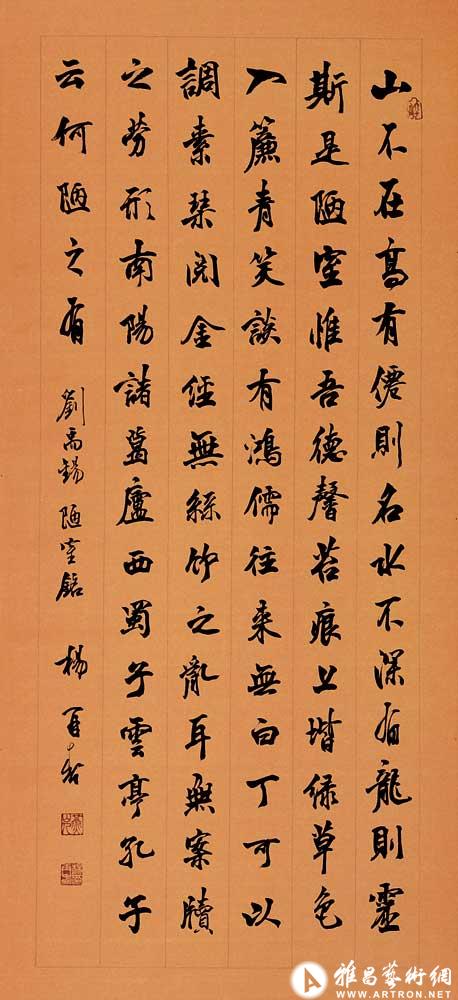 山不在高有僊則名水不深有龍則靈
斯是陋室惟吾德馨苔痕上堦緑草色
入簾青笑談有鴻儒往來無白丁可以
調素琴閱金經無絲竹之亂耳無案牘
之勞形南陽諸葛廬西蜀子雲亭孔子
云何陋之有 劉禹錫陋室銘 楊再春
雅昌藝術網
WWW.ARTRON.NET